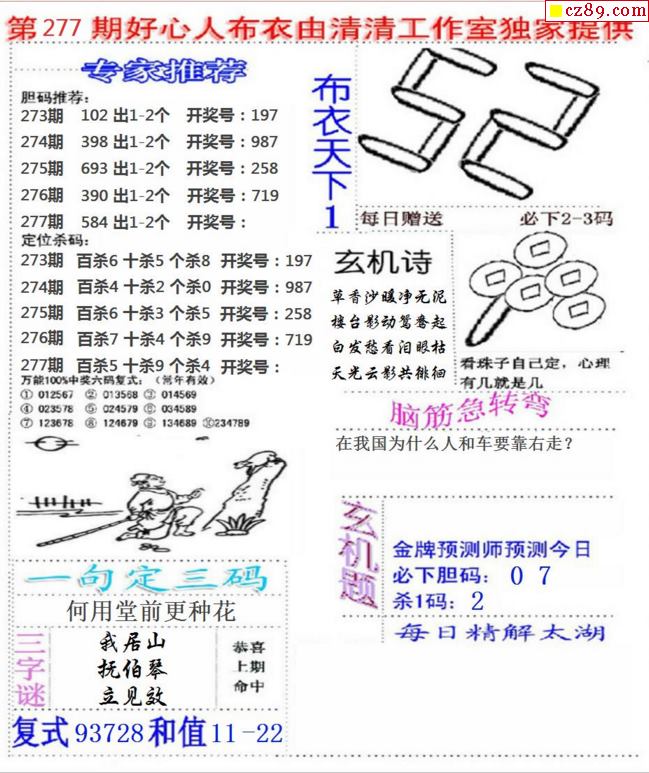 cz89.com
第277期好心人布衣由清清工作室独家提供
专家推荐
胆码推荐：
273期 102 出1-2个 开奖号：197
274期 398 出1-2个 开奖号：987
275期 693 出1-2个 开奖号：258
276期 390 出1-2个 开奖号：719
277期 584 出1-2个 开奖号：
定位杀码：
273期 百杀6 十杀5 个杀8 开奖号：197
274期 百杀4 十杀2 个杀0 开奖号：987
275期 百杀6 十杀3 个杀5 开奖号：258
276期 百杀7 十杀4 个杀9 开奖号：719
277期 百杀5 十杀9 个杀4 开奖号：
万能100%中奖六码复式：（常年有效）
① 012567 ② 013568 ③ 014569
④ 023578 ⑤ 024579 ⑥ 034589
⑦ 123678 ⑧ 124679 ⑨ 134689 ⑩234789
一句定三码
何用堂前更种花
三字谜
我居山
抚伯琴
立见效
恭喜
上期
命中
复式93728和值11-22
布衣天下1
52
每日赠送 必下2-3码
玄机诗
草香沙暖净无泥
楼台影动鸳鸯起
白发愁看泪眼枯
天光云影共徘徊
看珠子自己定，心理
有几就是几
脑筋急转弯
在我国为什么人和车要靠右走？
玄机题
金牌预测师预测今日
必下胆码：0 7
杀1码：2
每日精解太湖